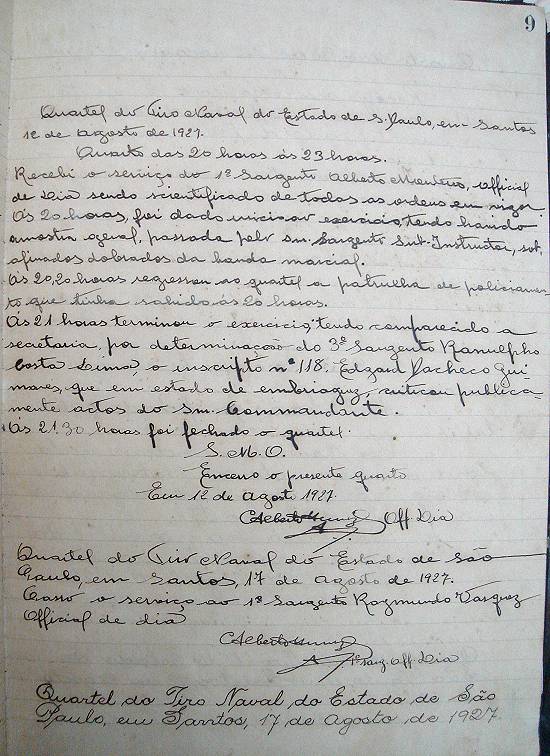 9
Quartel do Tiro Naval do Estado de S. Paulo, em Santos
12 de Agosto de 1927.
Quarto das 20 horas ás 23 horas.
Recebi o serviço do 1º Sargento Alberto Monteiro, Official
de Dia sendo scientificado de todas as ordens em vigor.
Ás 20 horas, foi dado inicio ao exercicio, tendo havido
amostra geral, passada pelo snr. Sargento Sub-Instructor, sob
afinados dobrados da banda marcial.
Ás 20,20 horas regressou ao quartel a patrulha de policiamen-
to que tinha sahido ás 20 horas.
Ás 21 horas terminou o exercicio, tendo comparecido a
secretaria, por determinação do 3º Sargento Ranulpho
Costa Lima, o inscripto nº 118. Edgard Pacheco Gui-
marães, que em estado de embriaguz, criticou publica-
mente actos do snr. Commandante.
Ás 21.30 horas foi fechado o quartel.
S. M. O.
Encerro o presente quarto
Em 12 de Agosto 1927.
Alberto Off. Dia
Quartel do Tiro Naval do Estado de São
Paulo, em Santos, 17 de Agosto de 1927.
Passo o serviço ao 1º Sargento Raymundo Vasquez
Official de dia
Alberto
1º Sarg. Off. Dia
Quartel do Tiro Naval do Estado de São
Paulo, em Santos, 17 de Agosto de 1927.